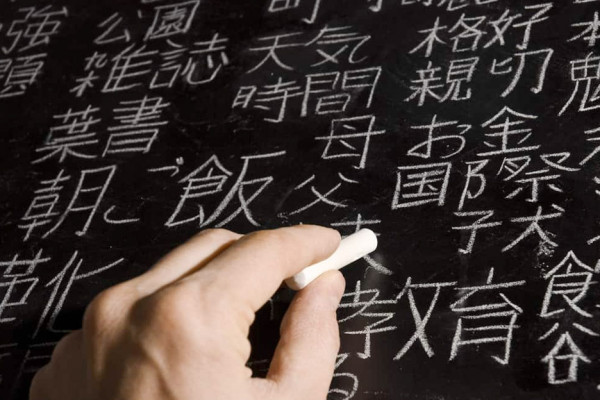 強 公園
題 雑誌 天気 格好
葉書 時間 親切
朝ご飯 母 お金
父 国際
化 子犬
教育 食